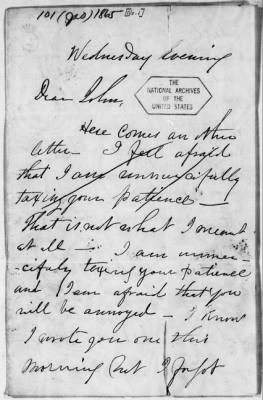 101 (JAO) 1865 [No.1]
Wednesday Evening
THE
NATIONAL ARCHIVES
OF THE
UNITED STATES
Dear John,
Here comes an other
letter — I feel afraid
that I am unmercifully
taxing your patience —
That is not what I meant
at all — I am unmer-
-cifuly taxing your patience
and I am afraid that you
will be annoyed — I know
I wrote you one this
morning but I forgot